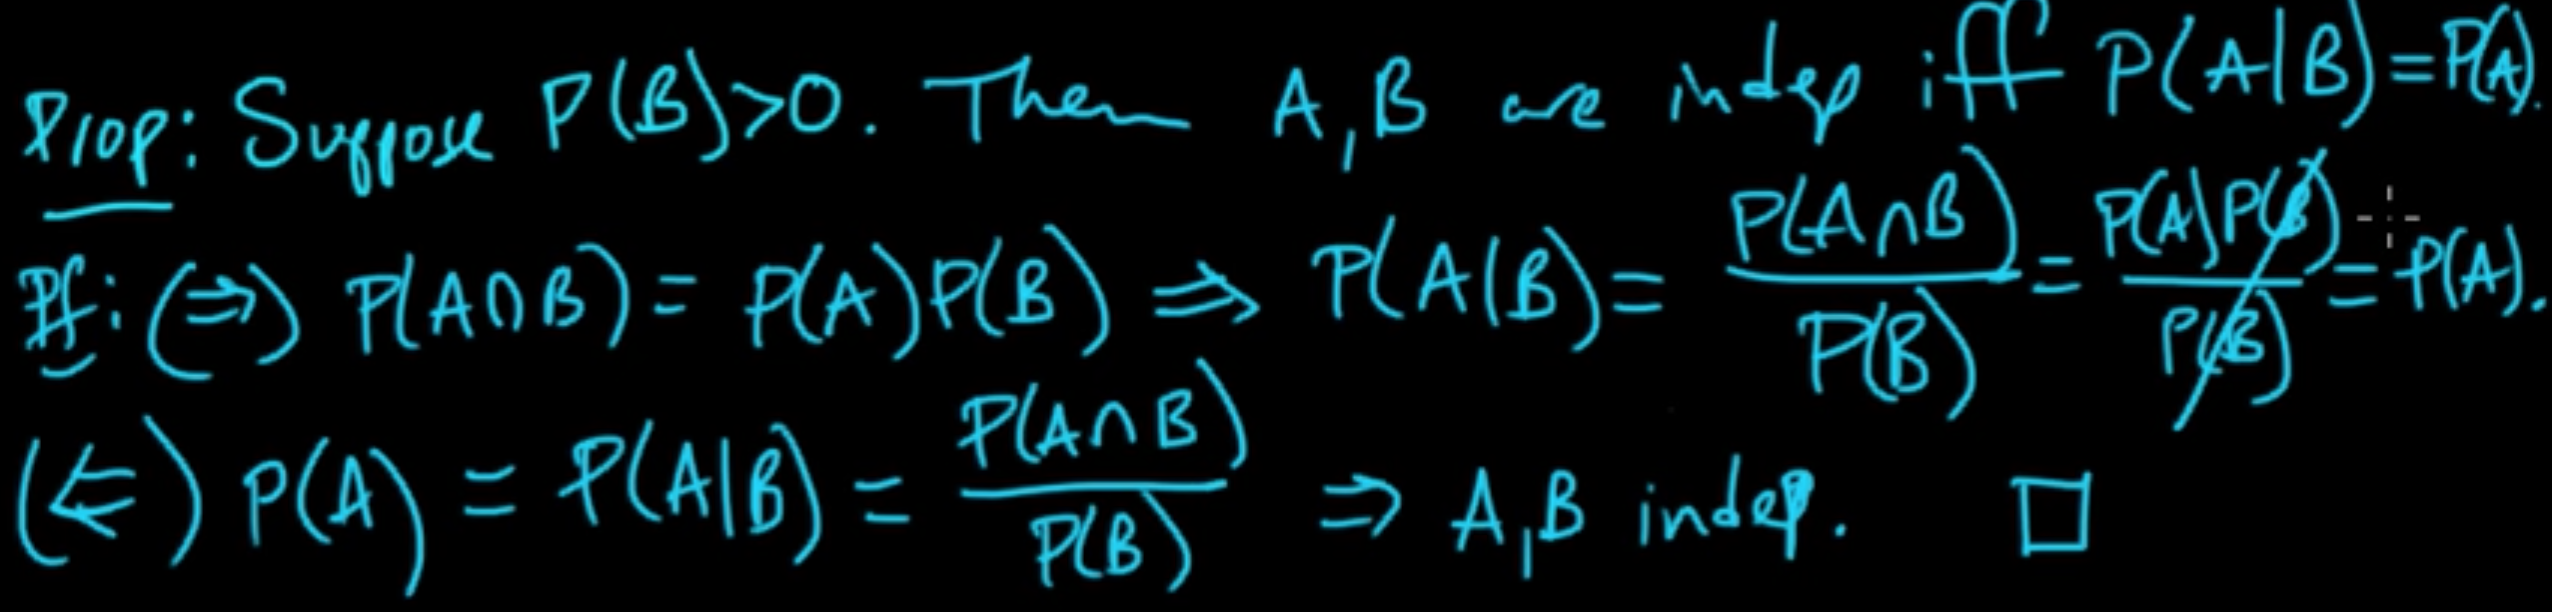 Prop: Suppose P(B)>0. Then A,B are indep iff P(A|B)=P(A).
Pf: (⇒) P(A∩B) = P(A)P(B) ⇒ P(A|B) = P(A∩B)/P(B) = P(A)P(B)/P(B) = P(A).
(⇐) P(A) = P(A|B) = P(A∩B)/P(B) ⇒ A,B indep. □